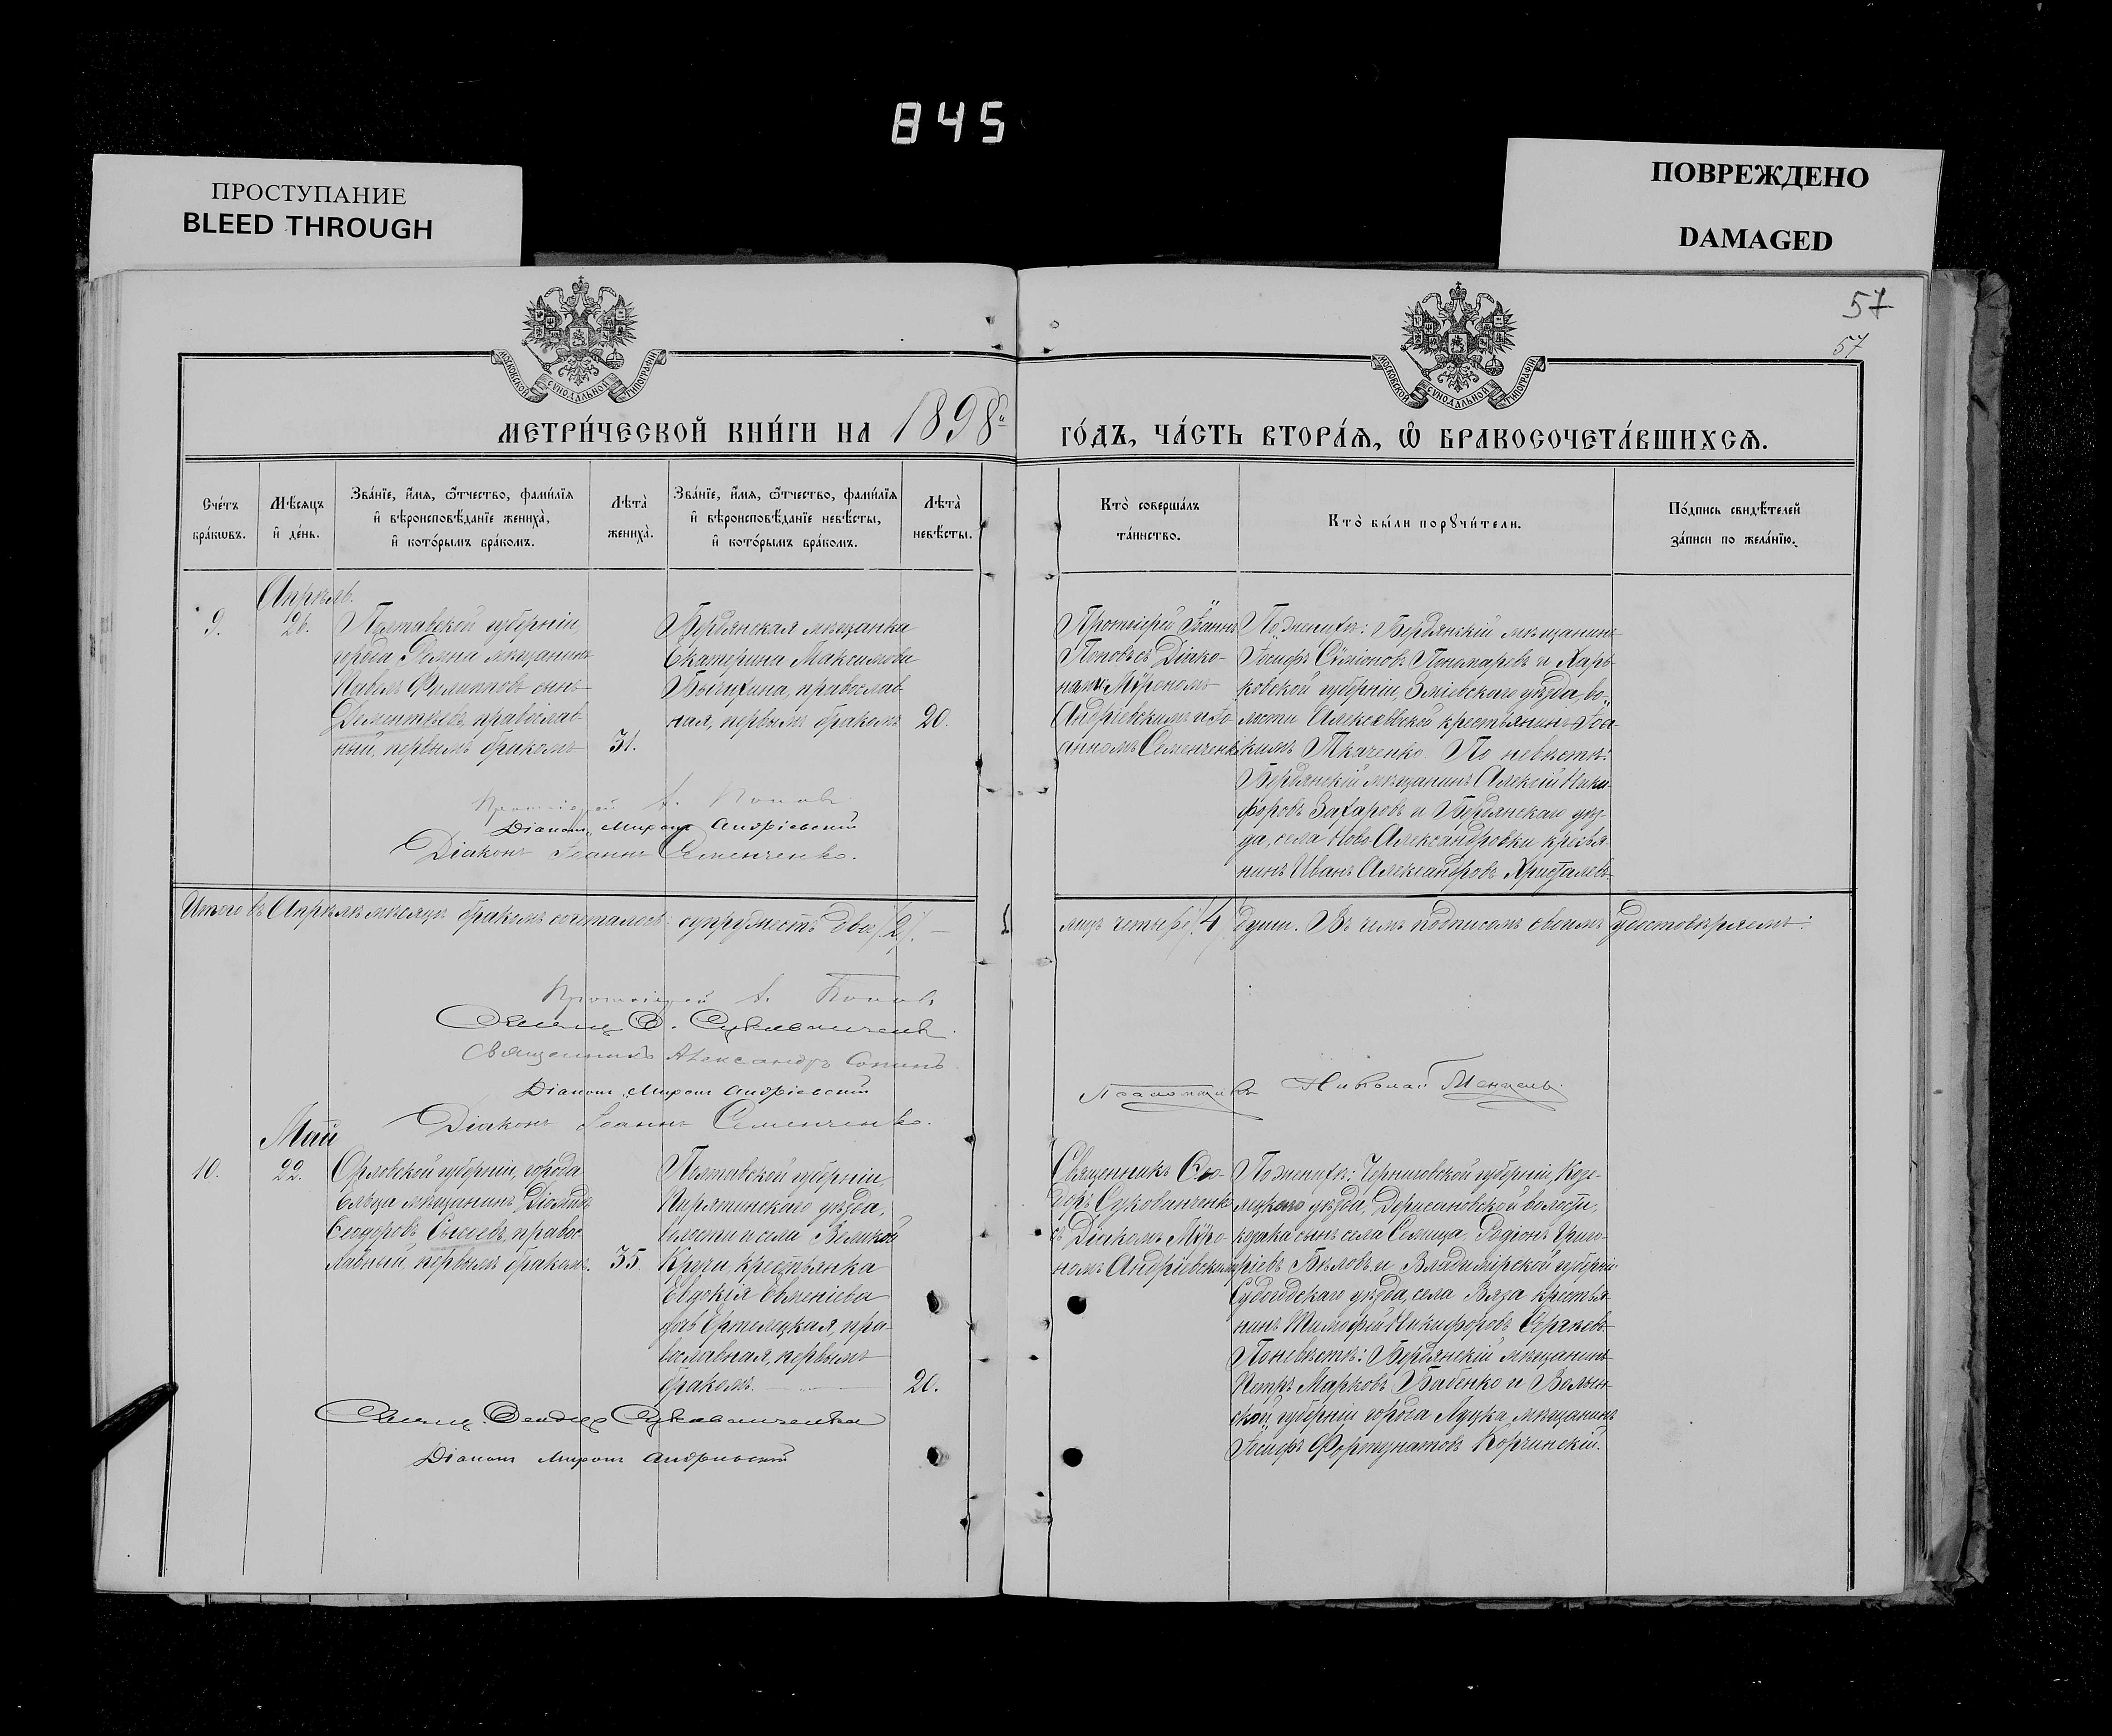 845
ПРОСТУПАНИЕ
BLEED THROUGH
ПОВРЕЖДЕНО
DAMAGED
57
57
МОСКОВСКОЙ СѴНОДАЛЬНОЙ ТИПОГРАФІИ
МОСКОВСКОЙ СѴНОДАЛЬНОЙ ТИПОГРАФІИ
МЕТРИ́ЧЕСКОЙ КНИ́ГИ НА 1898й
ГО́ДЪ, ЧА́СТЬ ВТОРА́Ѧ, Ѽ БРАКОСОЧЕТА́ВШИХСѦ.
Сче́тъ бра́кѡвъ.
Мѣ́сѧцъ и҆ де́нь.
Зва́нїе, и҆́мѧ, ѻ҆́тчество, фами́лїѧ и҆ вѣроисповѣ́данїе жениха̀, и҆ кото́рымъ бра́комъ.
Лѣ́та̀ жениха̀.
Зва́нїе, и҆́мѧ, ѻ҆́тчество, фами́лїѧ и҆ вѣроисповѣ́данїе невѣ́сты, и҆ кото́рымъ бра́комъ.
Лѣ́та̀ невѣ́сты.
Кто̀ соверша́лъ та́инство.
Кто̀ бы́ли порꙋчи́тели.
По́дпись свидѣ́телей за́писи по жела́нїю.
Апрѣль.
9.
26.
Полтавской губерніи,
города Ромна мѣщанинъ
Павелъ Филипповъ сынъ
Дементьевъ, православ-
ный, первымъ бракомъ
31.
Бердянская мѣщанка
Екатерина Максимова
Бычихина, православ
ная, первымъ бракомъ
20.
Протоіерей Іоаннъ
Поповъ съ Діако-
нами Мѵрономъ
Андріевскимъ и Іо-
анномъ Семенченко
По женихѣ: Бердянскій мѣщанинъ
Іосифъ Сѵміоновъ Пономаревъ и Харь-
ковской губерніи, Зміевскаго уѣзда, во-
лости Алексѣевской крестьянинъ Іоа-
кимъ Ткаченко. По невѣстѣ:
Бердянскій мѣщанинъ Алексій Ники-
форовъ Захаровъ и Бердянскаго уѣз-
да, села Ново-Александровки крестья-
нинъ Иванъ Александровъ
Протоіерей І. Поповъ
Діаконъ Миронъ Андріевскій
Діаконъ Іоаннъ Семенченко.
Итого въ Апрѣлѣ мѣсяцѣ бракомъ сочеталось: супружествъ два /2/. —
лицъ четыре /4/ души. Въ чемъ подписомъ своимъ удостовѣряемъ:
Протоіерей І. Поповъ
Священ. Ѳ. Сукованченко.
Священникъ Александръ Сопинъ.
Діаконъ Миронъ Андріевскій
Діаконъ Іоаннъ Семенченко.
Псаломщикъ Николай Менцель.
Май
10.
22.
Орловской губерніи, города
Ельца мѣщанинъ Діомидъ
Ѳеодоровъ Сысоевъ, правос
лавный, первымъ бракомъ.
35.
Полтавской губерніи,
Пирятинскаго уѣзда,
волости и села Великой
Кручи, крестьянка
Евдокія Евменіева
дочь Ортелецкая, пра-
вославная, первымъ
бракомъ.
20.
Священникъ Ѳео-
доръ Сукованченко
съ Діакомъ Мѵро-
номъ Андріевскимъ
По женихѣ: Черниговской губерніи, Козе-
лецкаго уѣзда, волости,
козака сынъ села Селища, Родіонъ Григо-
ріевъ Бѣловъ и Владимірской губерніи
Судогодскаго уѣзда, села Вяза крестья-
нинъ Тимофей Никифоровъ Сергѣевъ
По невѣстѣ: Бердянскій мѣщанинъ
Петръ Марковъ Бабенко и Волын-
ской губерніи города Луцка мѣщанинъ
Іосифъ Фортунатовъ Корчинскій.
Священ. Ѳеодоръ Сукованченко
Діаконъ Миронъ Андріевскій